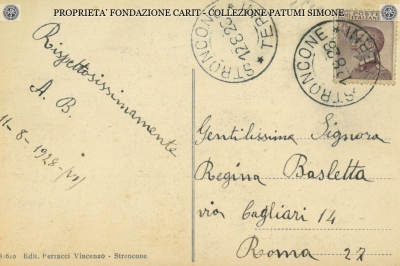 PROPRIETA' FONDAZIONE CARIT - COLLEZIONE PATUMI SIMONE
STRONCONE * TERNI *
12.8.28
STRONCONE * TERNI *
12.8.28
POSTE ITALIANE
Rispettosissimamente
A. B.
11-8-1928-(VI)
Gentilissima Signora
Regina Basletta
via Cagliari 14
Roma 27
Edit. Ferracci Vincenzo - Stroncone